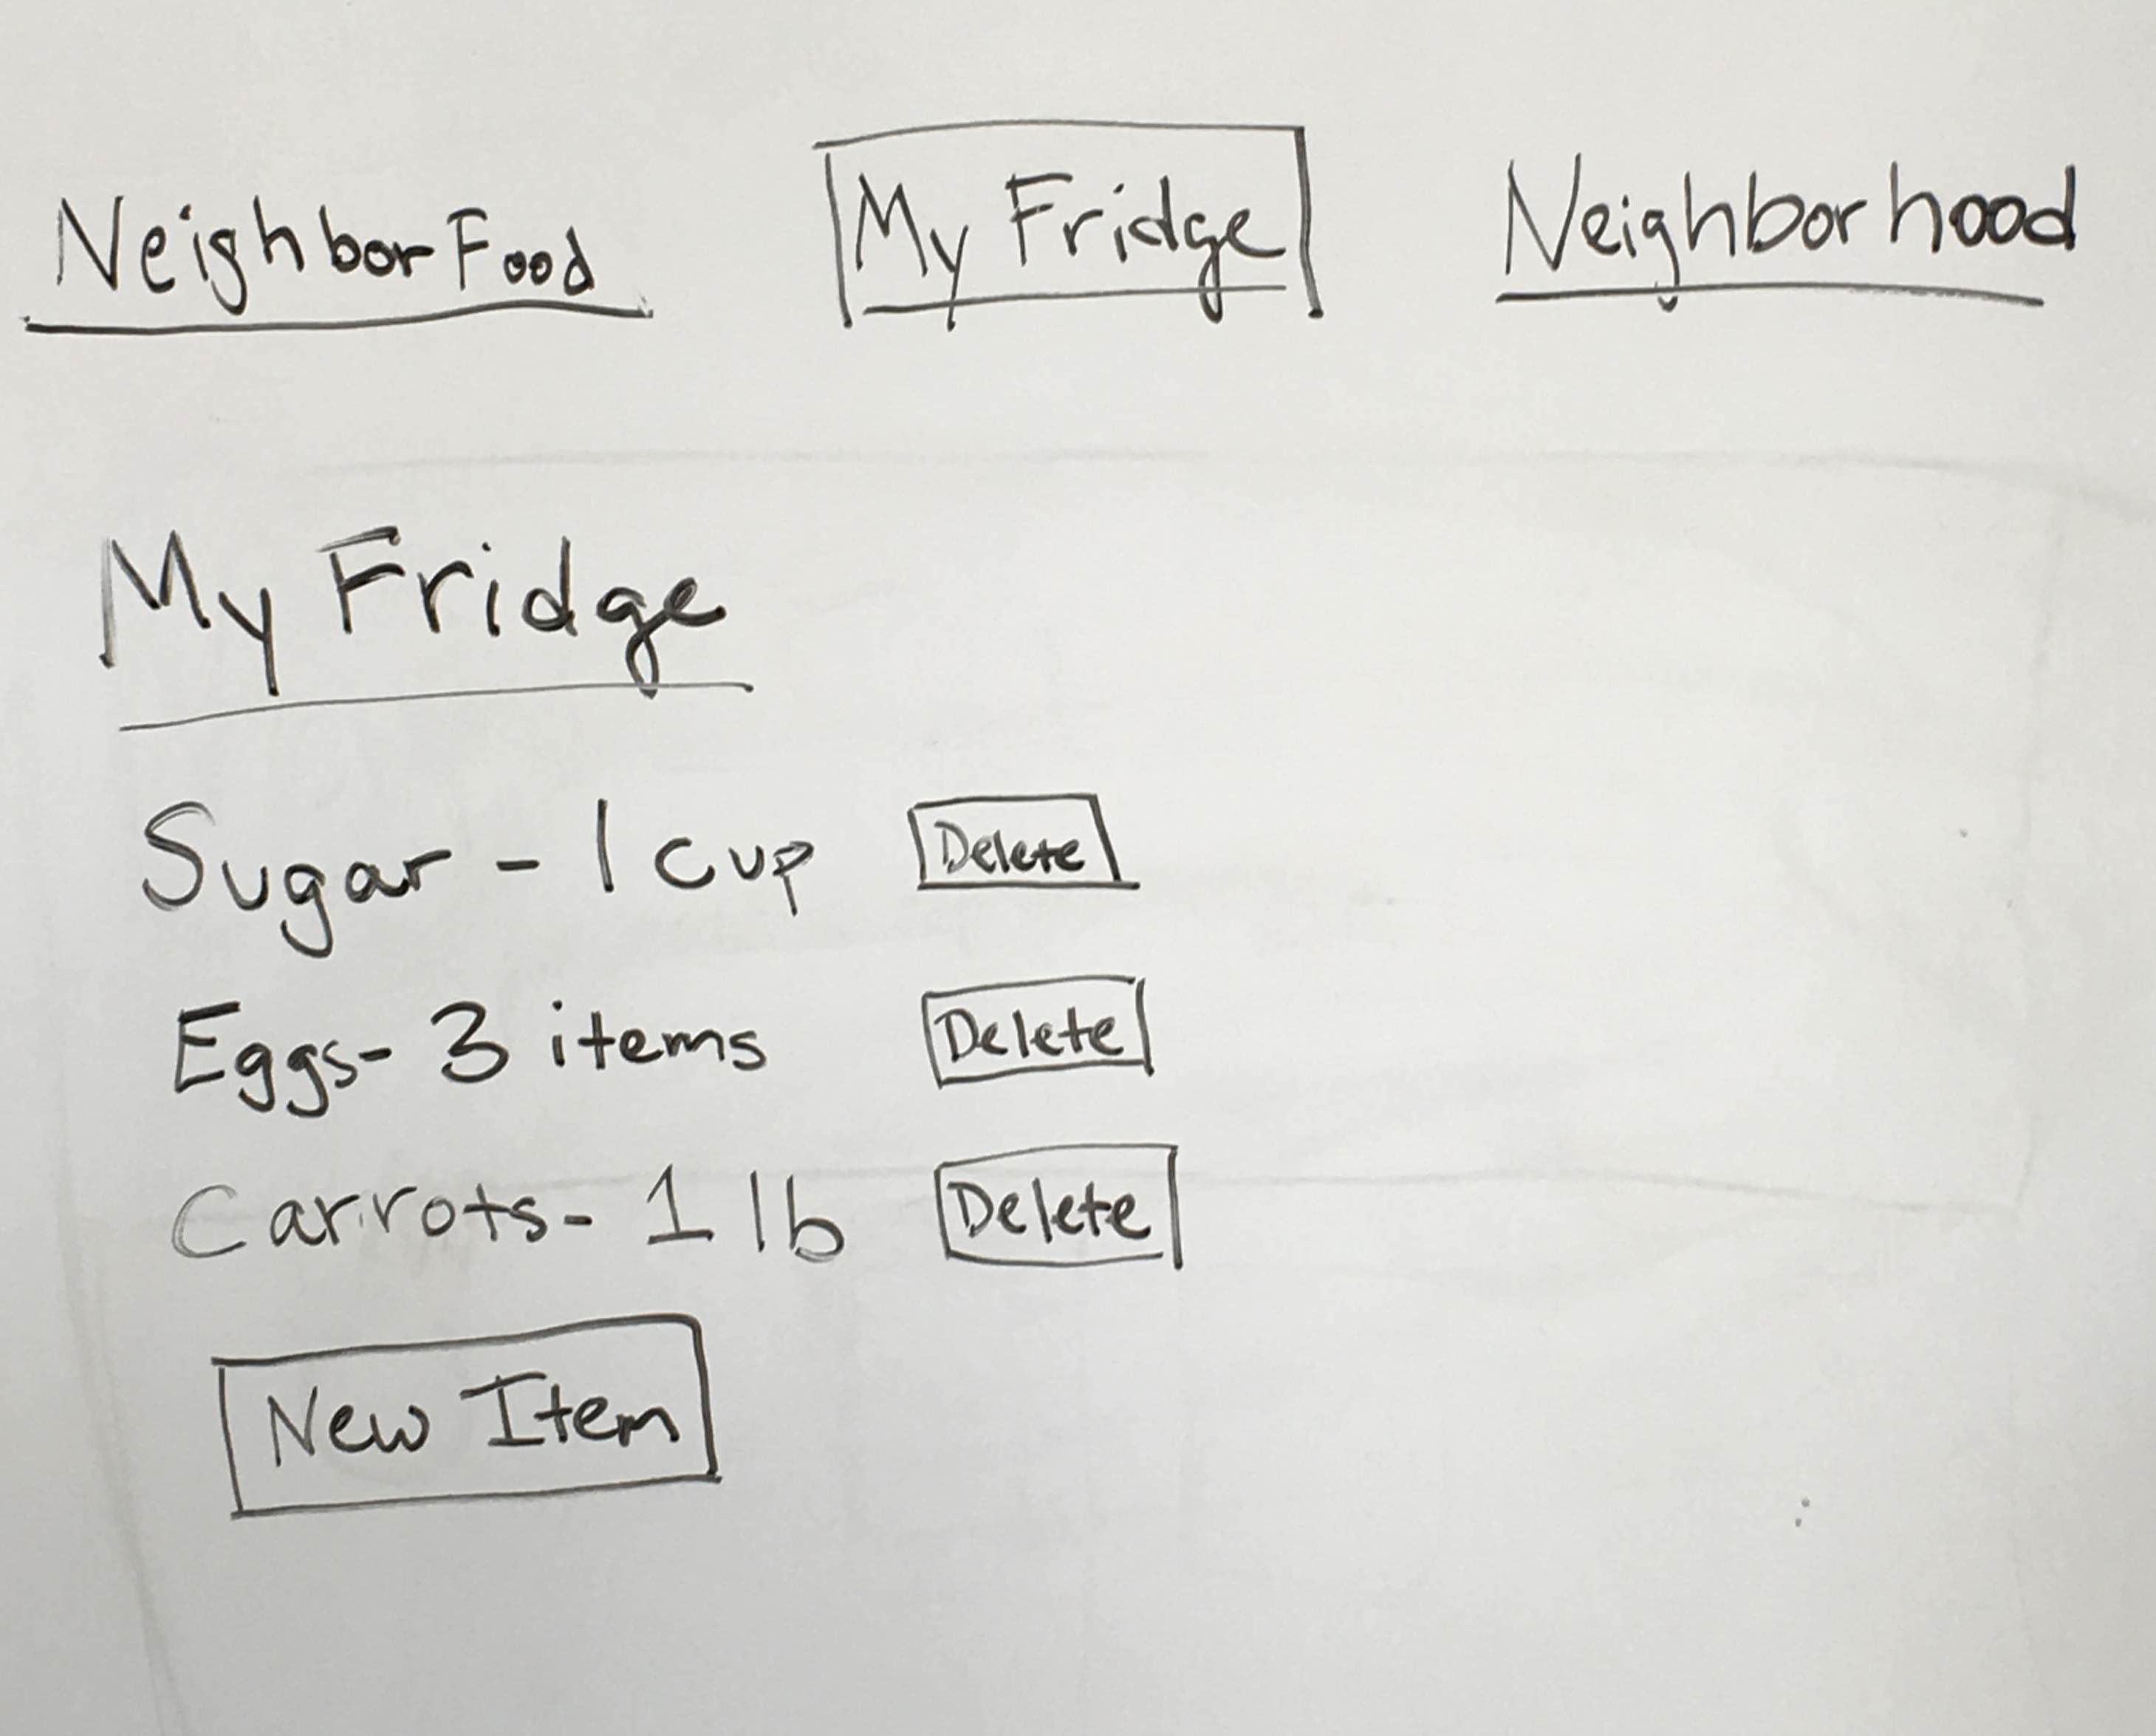 NeighborFood My Fridge Neighborhood
My Fridge
Sugar - 1 cup Delete
Eggs- 3 items Delete
Carrots- 1 lb Delete
New Item